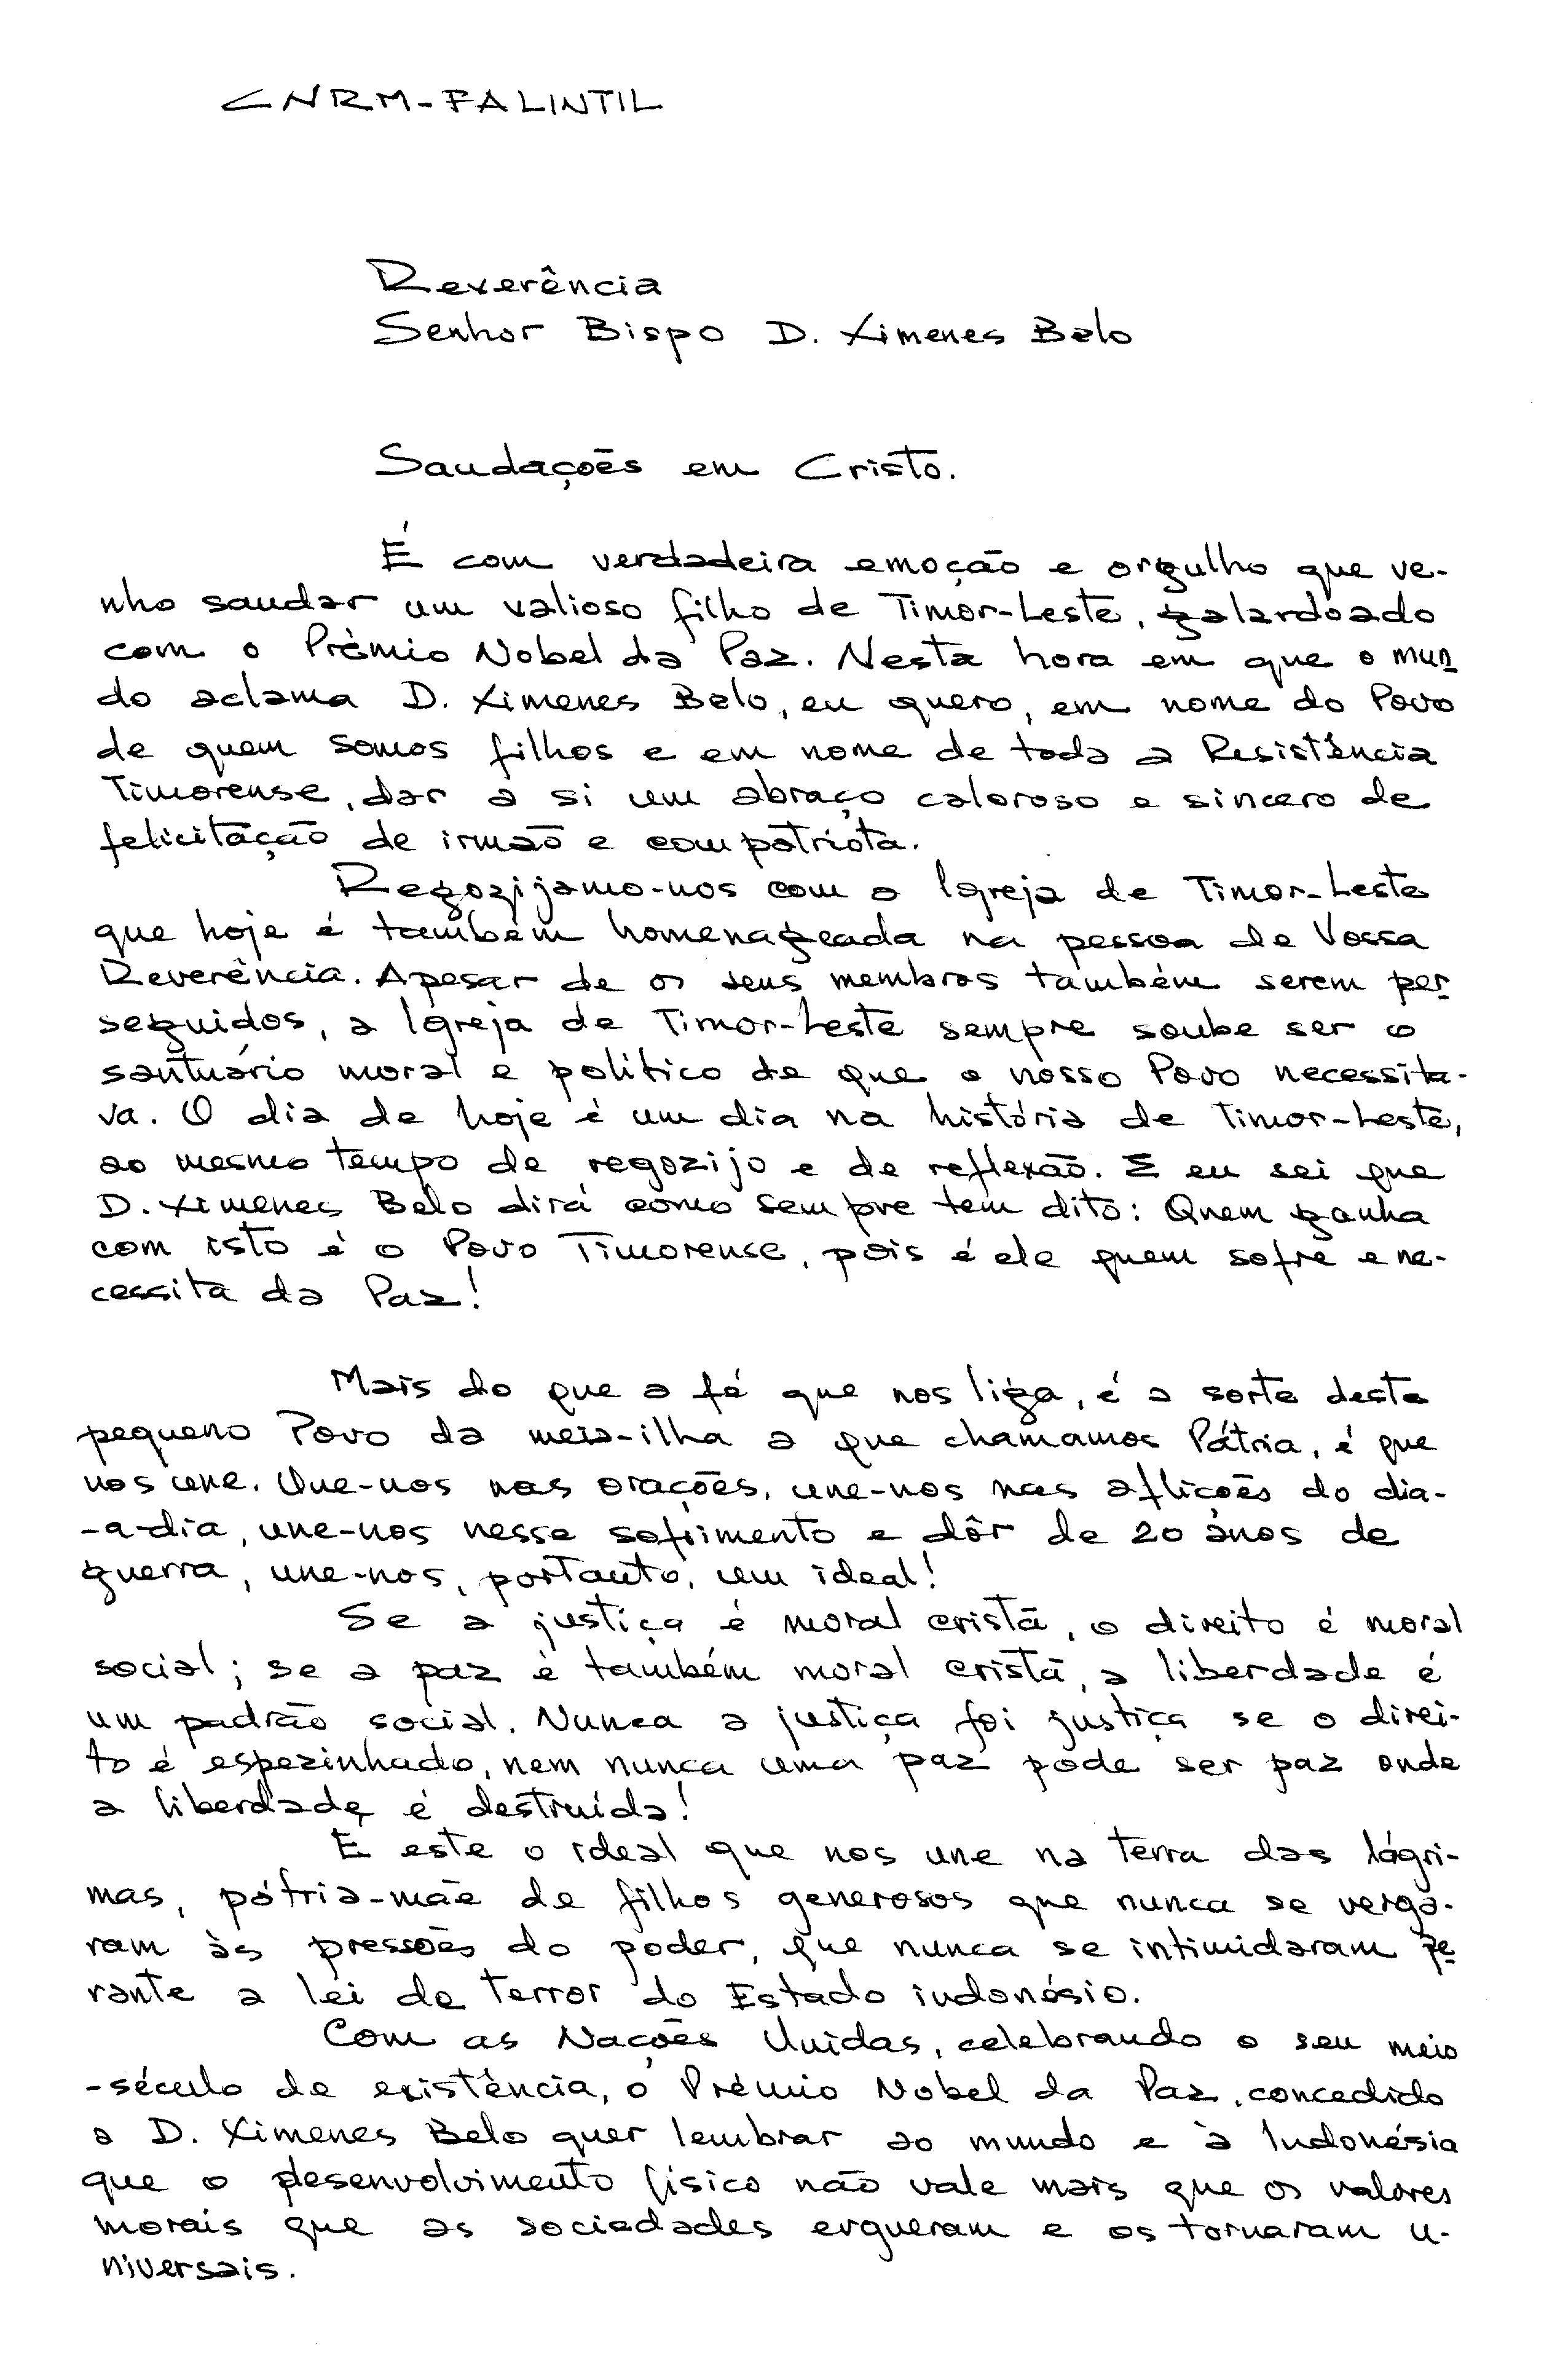 CNRM-FALINTIL
Reverência
Senhor Bispo D. Ximenes Belo
Saudações em Cristo.
É com verdadeira emoção e orgulho que ve-
nho saudar um valioso filho de Timor-Leste, galardoado
com o Prémio Nobel da Paz. Nesta hora em que o mun
do aclama D. Ximenes Belo, eu quero, em nome do Povo
de quem somos filhos e em nome de toda a Resistência
Timorense, dar a si um abraço caloroso e sincero de
felicitação de irmão e compatriota.
Regozijamo-nos com a Igreja de Timor-Leste
que hoje é também homenageada na pessoa de Vossa
Reverência. Apesar de os seus membros também serem per
seguidos, a Igreja de Timor-Leste sempre soube ser o
santuário moral e político de que o nosso Povo necessita-
va. O dia de hoje é um dia na história de Timor-Leste,
ao mesmo tempo de regozijo e de reflexão. E eu sei que
D. Ximenes Belo dirá como sempre tem dito: Quem ganha
com isto é o Povo Timorense, pois é ele quem sofre e ne-
cessita da Paz!
Mais do que a fé que nos liga, é a sorte deste
pequeno Povo da meia-ilha a que chamamos Pátria, é que
nos une. Une-nos nas orações, une-nos nas aflições do dia-
-a-dia, une-nos nesse sofrimento e dôr de 20 anos de
guerra, une-nos, portanto, um ideal!
Se a justiça é moral cristã, o direito é moral
social; se a paz é também moral cristã, a liberdade é
um padrão social. Nunca a justiça foi justiça se o direi-
to é espezinhado, nem nunca uma paz pode ser paz onde
a liberdade é destruída!
É este o ideal que nos une na terra das lágri-
mas, pátria-mãe de filhos generosos que nunca se verga-
ram às pressões do poder, que nunca se intimidaram pe
rante a lei de terror do Estado indonésio.
Com as Nações Unidas, celebrando o seu meio
-século de existência, o Prémio Nobel da Paz, concedido
a D. Ximenes Belo quer lembrar ao mundo e à Indonésia
que o desenvolvimento físico não vale mais que os valores
morais que as sociedades ergueram e os tornaram u-
niversais.